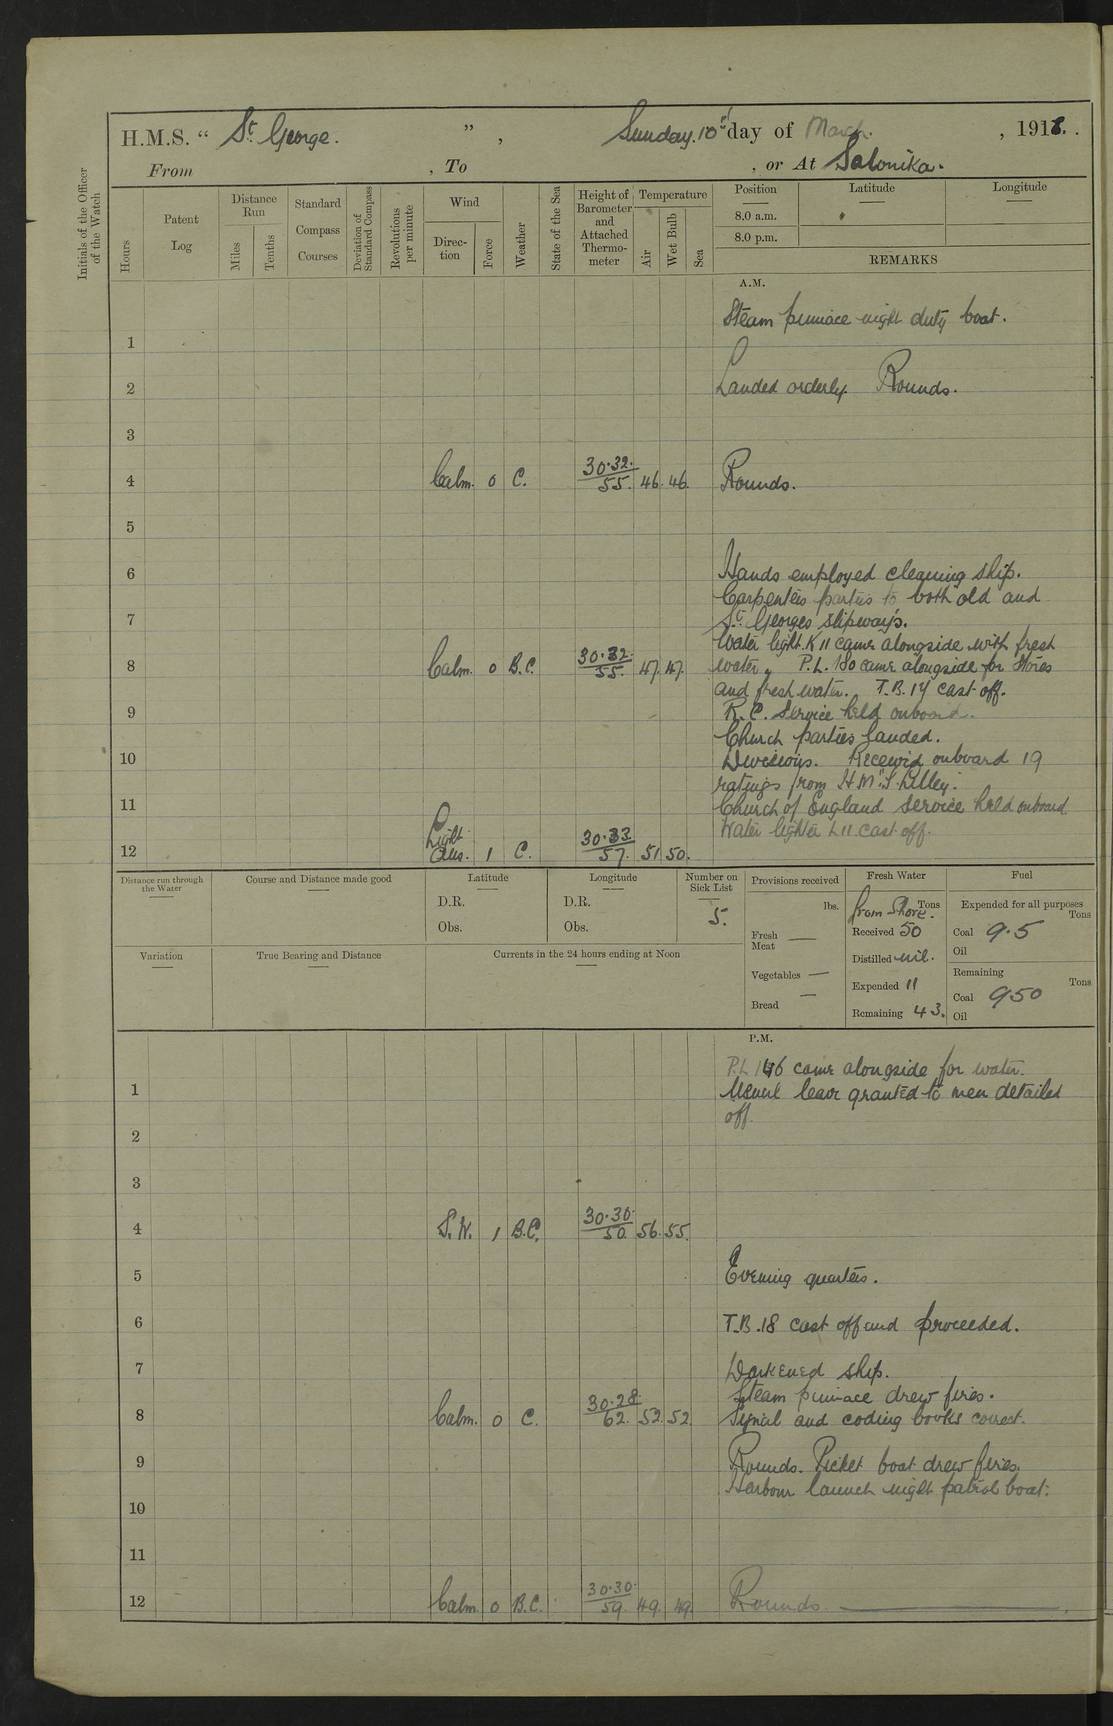 H.M.S. " St George. " , Sunday. 10th day of March. , 1918.
From , To , or At Salonika.
Initials of the Officer of the Watch
Hours
Patent Log
Distance Run
Miles
Tenths
Standard Compass Courses
Deviation of Standard Compass
Revolutions per minute
Wind
Direction
Force
Weather
State of the Sea
Height of Barometer and Attached Thermometer
Temperature
Air
Wet Bulb
Sea
Position
8.0 a.m.
8.0 p.m.
Latitude
Longitude
REMARKS
A.M.
Steam pinnace night duty boat.
1
2 Landed orderly. Rounds.
3
4 Calm. 0 C. 30.32. 55. 46. 46. Rounds.
5
6 Hands employed cleaning ship.
Carpenters parties to both old and
7 St Georges slipways.
Water light. K 11 came alongside with fresh
8 Calm. 0 B.C. 30.32. 55. 47. 47. water, P.L. 180 came alongside for stores
and fresh water. T.B. 17 cast off.
9 R.C. Service held onboard.
Church parties landed.
10 Divisions. Received onboard 19
ratings from H.M.S. Lilley.
11 Church of England Service held onboard
Water lighter L11 cast off.
12 Light Airs. 1 C. 30.33 57. 51. 50.
Distance run through the Water
Course and Distance made good
Latitude
D.R.
Obs.
Longitude
D.R.
Obs.
Number on Sick List
5.
Provisions received
lbs.
Fresh Meat —
Vegetables —
Bread —
Fresh Water
Tons
from Shore.
Received 50
Distilled nil.
Expended 11
Remaining 43.
Fuel
Expended for all purposes
Tons
Coal 9.5
Oil
Remaining
Tons
Coal 950
Oil
Variation
True Bearing and Distance
Currents in the 24 hours ending at Noon
P.M.
P.L 146 came alongside for water.
1 Usual leave granted to men detailed
off.
2
3
4 S.W. 1 B.C. 30.30. 50. 56. 55.
5 Evening quarters.
6 T.B. 18 cast off and proceeded.
7 Darkened ship.
Steam pinnace drew fires.
8 Calm. 0 C. 30.28. 62. 52. 52 Signal and coding books correct.
9 Rounds. Picket boat drew fires.
Harbour launch night patrol boat.
10
11
12 Calm. 0 B.C. 30.30. 59. 49. 49. Rounds.